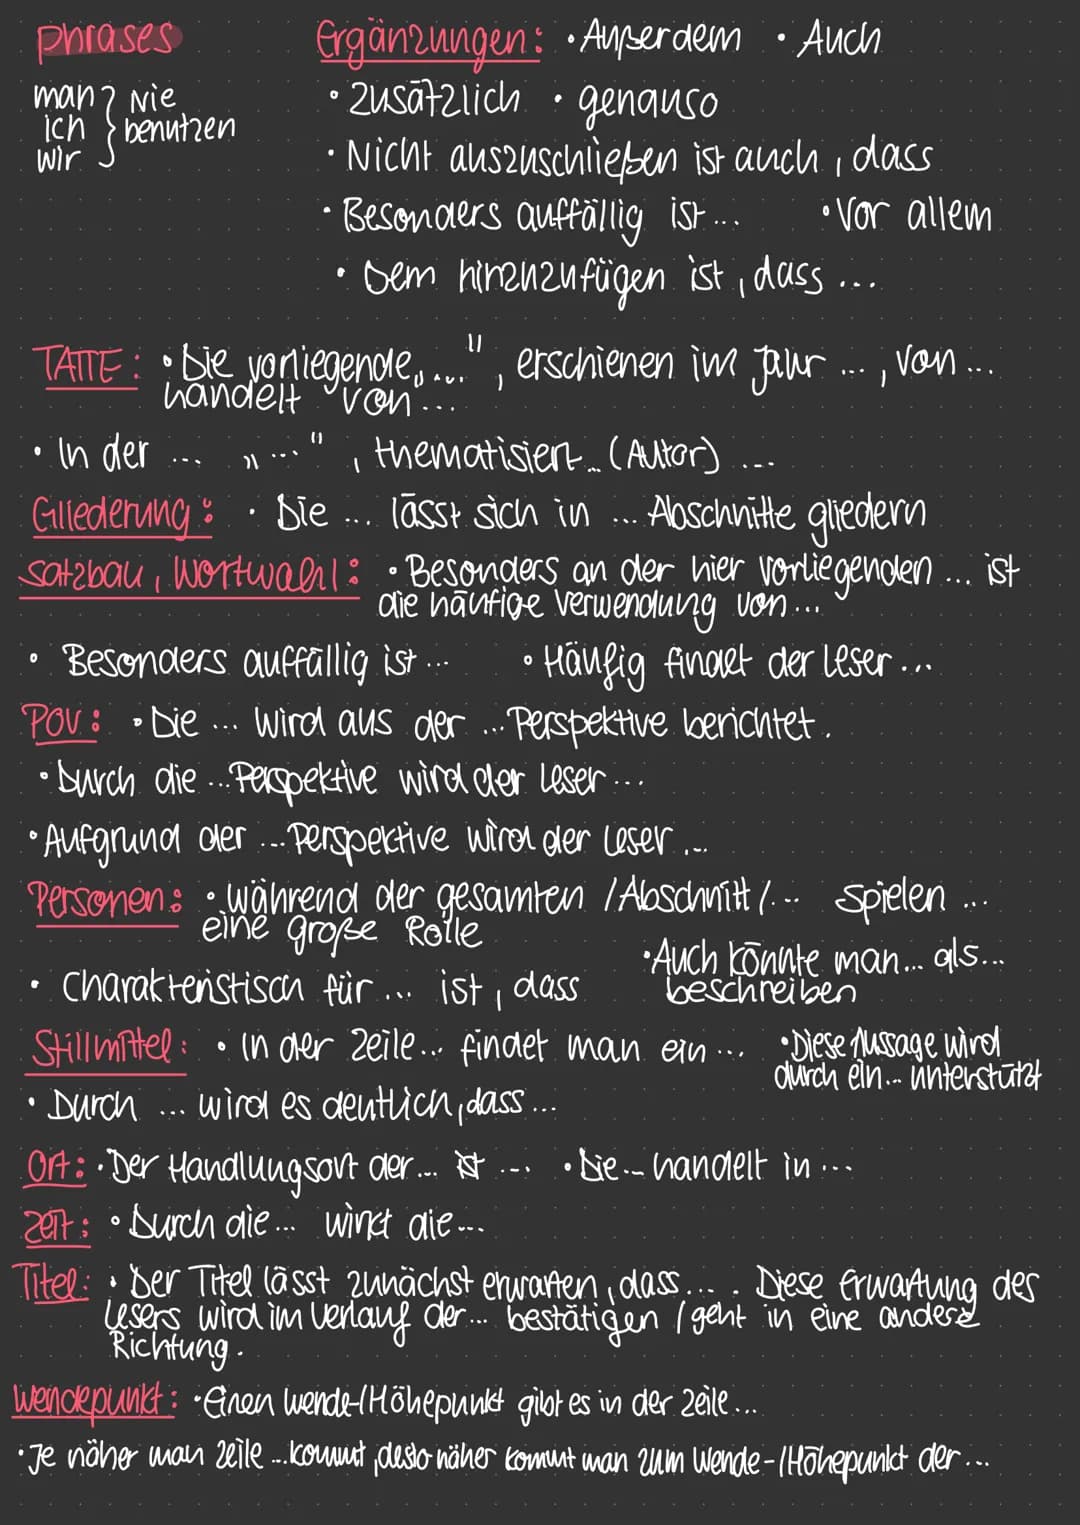 phrases
man } Nie
ich } benutzen
wir }
Ergänzungen: • Außerdem • Auch
• Zusätzlich • genauso
• Nicht auszuschließen ist auch, dass
• Besonders auffällig ist... • Vor allem
• Dem hinzuzufügen ist, dass ...
TATTE: • Die vorliegende „...", erschienen im Jahr ..., von ...
handelt von ...
• In der ... „...", thematisiert ... (Autor) ...
Gliederung: • Die ... lässt sich in ... Abschnitte gliedern
Satzbau, Wortwahl: • Besonders an der hier vorliegenden ... ist
die häufige Verwendung von ...
• Besonders auffällig ist ... • Häufig findet der Leser ...
POV: • Die ... wird aus der ... Perspektive berichtet.
• Durch die ... Perspektive wird der Leser ...
• Aufgrund der ... Perspektive wird der Leser ...
Personen: • während der gesamten /Abschnitt/... spielen ...
eine große Rolle
• Auch könnte man... als...
beschreiben
• Charakteristisch für ... ist, dass
Stillmittel: • In der Zeile... findet man ein ...
• Diese Aussage wird
durch ein... unterstützt
• Durch ... wird es deutlich, dass ...
Ort: • Der Handlungsort der... ist ... • Die ... handelt in ...
Zeit: • Durch die ... wirkt die ...
Titel: • Der Titel lässt zunächst erwarten, dass... . Diese Erwartung des
Lesers wird im Verlauf der ... bestätigen / geht in eine andere
Richtung.
Wendepunkt: • Einen Wende-/Höhepunkt gibt es in der Zeile ...
• Je näher man Zeile ... kommt, desto näher kommt man zum Wende-/Höhepunkt der ...